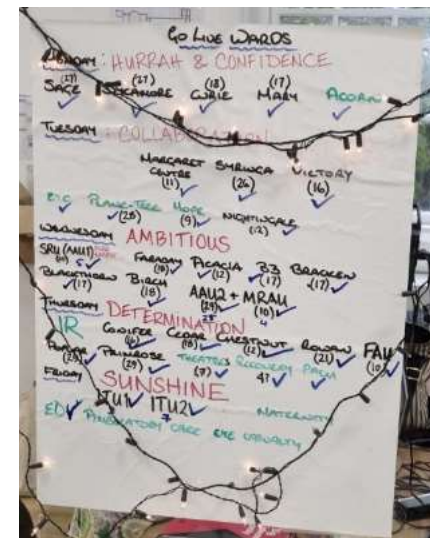 GO LIVE WARDS
MONDAY : HURRAH & CONFIDENCE
(27) (27) (18) (17)
SAGE SYCAMORE CURIE MARY ACORN
TUESDAY : COLLABORATION
MARGARET CENTRE (11) SYRINGA (26) VICTORY (16)
PLANE-TREE (28) HOPE (9) NIGHTINGALE (12)
WEDNESDAY AMBITIOUS
SRU (AAU1) FARADAY ACACIA (12) B3 (17) BRACKEN (17)
BLACKTHORN (17) BIRCH (18) AAU2 + MRAU (10)
THURSDAY DETERMINATION
IR CONIFER CEDAR CHESTNUT (12) ROWAN (21) FAU (10)
PRIMROSE THEATRES (7) RECOVERY
FRIDAY SUNSHINE
ED ITU1 ITU2 MATERNITY
CARE EYE CASUALTY